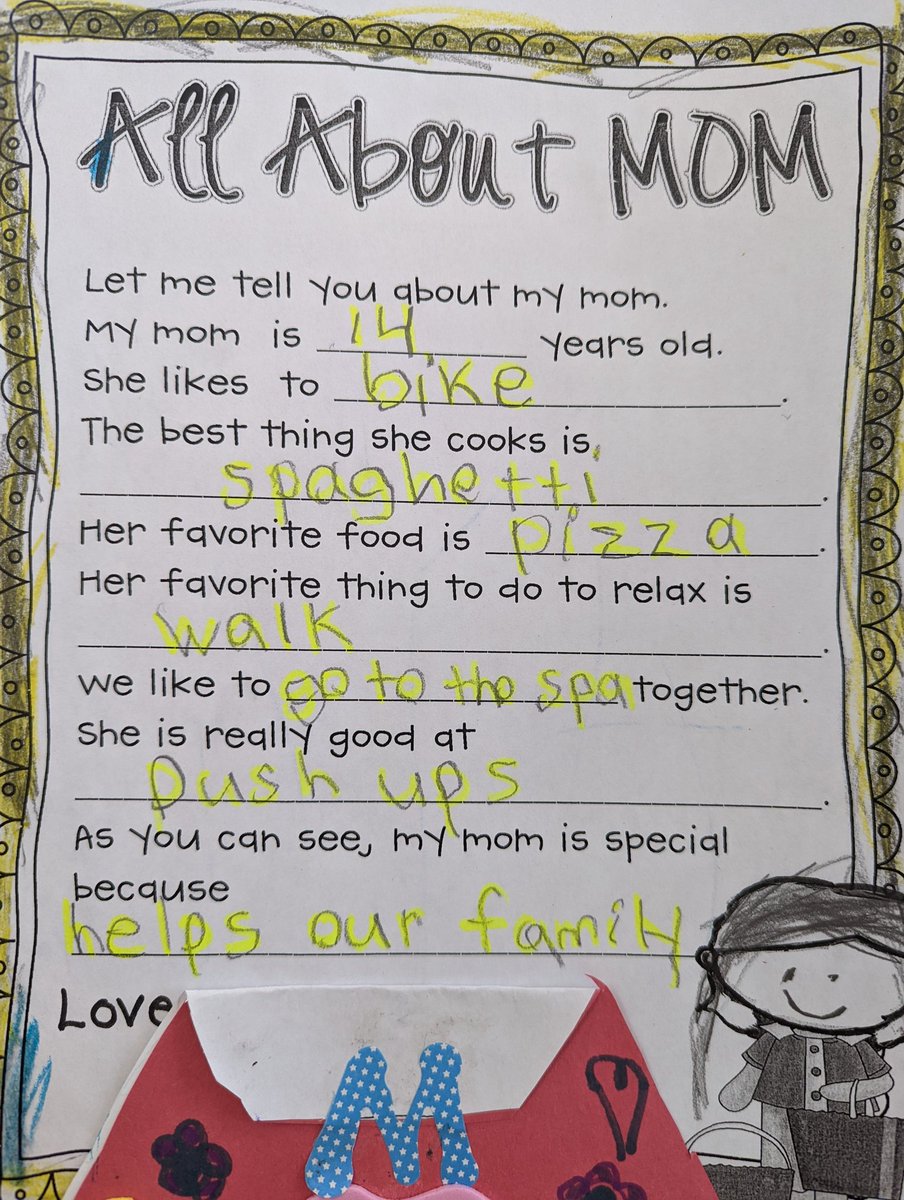 All About MOM
Let me tell you about my mom.
My mom is 14 years old.
She likes to bike.
The best thing she cooks is
spaghetti.
Her favorite food is pizza.
Her favorite thing to do to relax is
walk.
We like to go to the spa together.
She is really good at
push ups.
As you can see, my mom is special
because
helps our family
Love
M